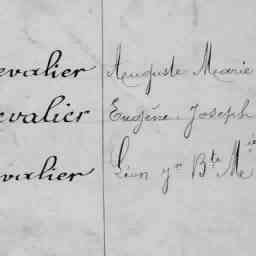 evalier Auguste Marie
evalier Eugène Joseph
evalier Léon Bte Mie